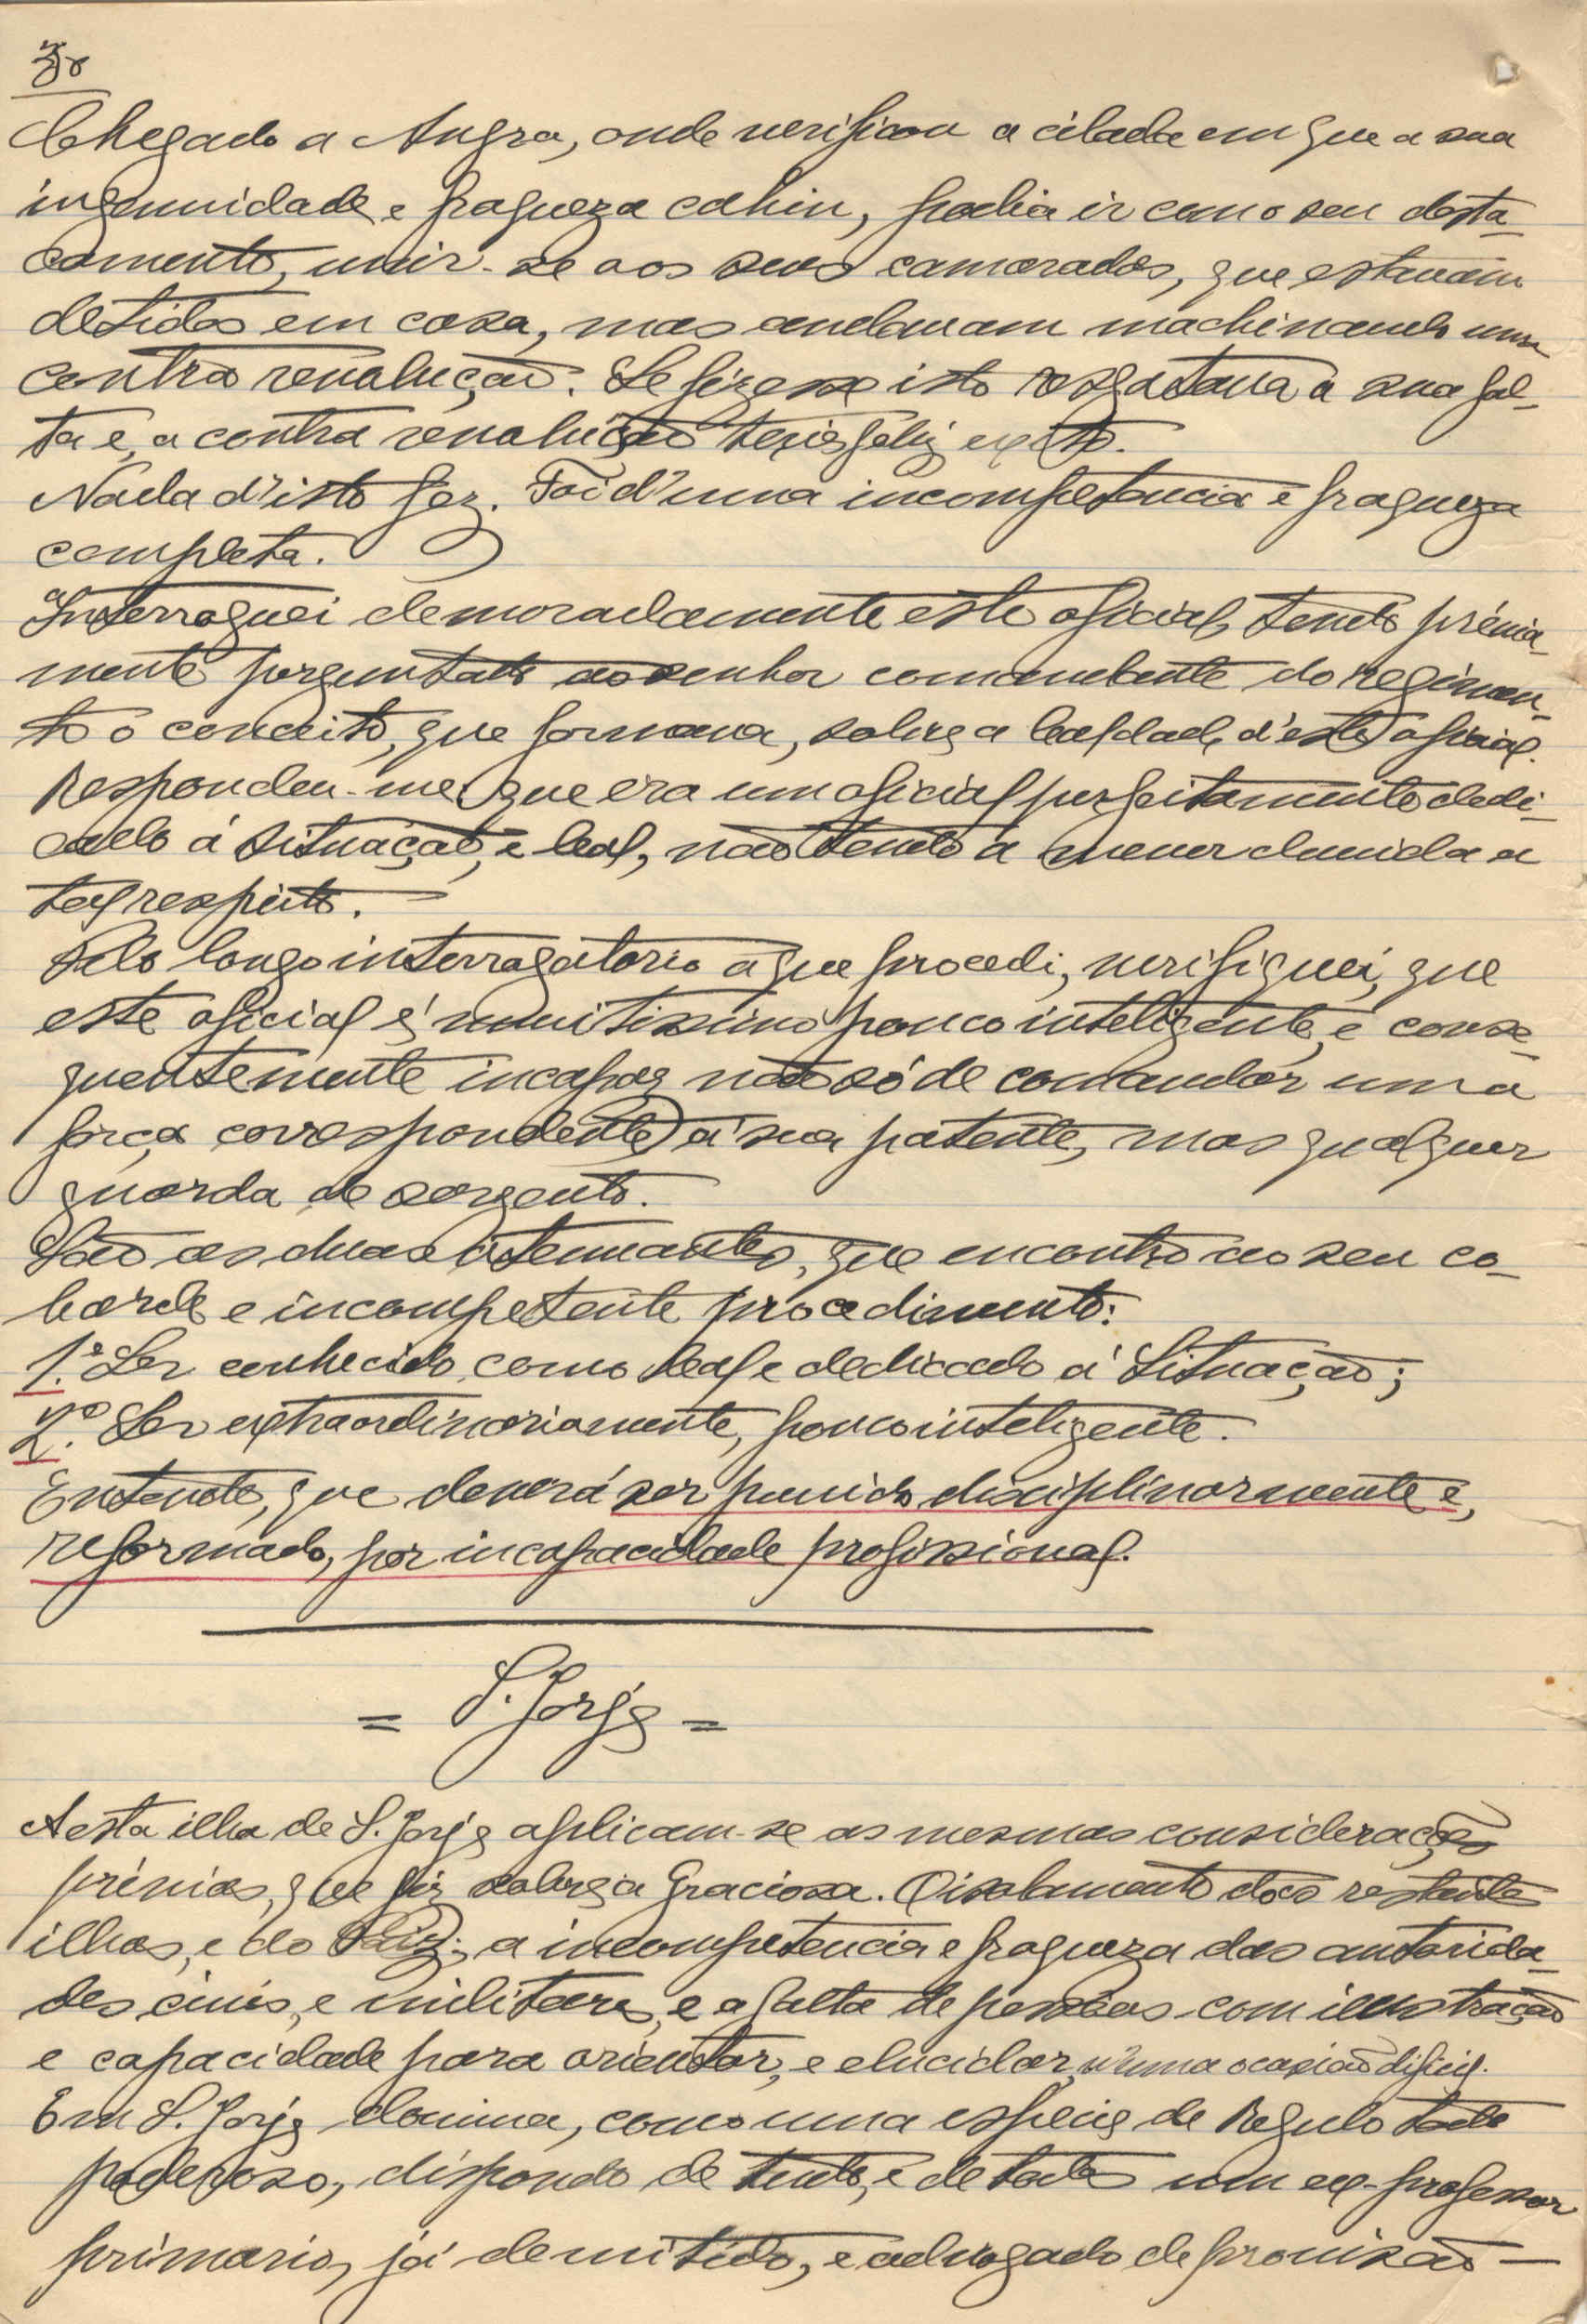 Chegado a Angra, onde verificou a cilada em que a sua
ingenuidade e fraqueza cahiu, podia ir com o seu desta-
camento, unir-se aos seus camaradas, que estavam
detidos em casa, mas andavam machinando uma
contra revolução. Se fizesse isto resgatava a sua fal-
ta e, a contra revolução teria feliz exito.
Nada d'isto fez. Foi d'uma incompetencia e fraqueza
completa.
Interroguei demoradamente este oficial, tendo prévia-
mente perguntado ao senhor comandante do regimen-
to o conceito, que formava, sobre a lealdade d'este oficial.
Respondeu-me que era um oficial perfeitamente dedi-
cado á situação, e leal, não tendo a menor duvida a
tal respeito.
Pelo longo interrogatorio a que procedi, verifiquei, que
este oficial é muitissimo pouco inteligente, e conse-
quentemente incapaz não só de comandar uma
força correspondente á sua patente, mas qualquer
guarda de sargento.
São as duas atenuantes, que encontro ao seu co-
barde e incompetente procedimento:
1.º Ser conhecido, como leal e dedicado á Situação;
2.º Ser extraordinariamente, pouco inteligente.
Entendo, que deverá ser punido disciplinarmente e,
reformado, por incapacidade profissional.
= S. Jorge =
A esta ilha de S. Jorge aplicam-se as mesmas considerações
prévias, que fiz sobre a Graciosa. O isolamento das restantes
ilhas, e do Paiz; a incompetencia e fraqueza das autorida-
des civis, e militares, e a falta de pessoas com ilustração
e capacidade para orientar, e elucidar, n'uma ocasião dificil.
Em S. Jorge domina, como uma especie de Regulo todo
poderoso, dispondo de tudo, e de todos um ex-professor
primario, já demitido, e advogado de provisão —